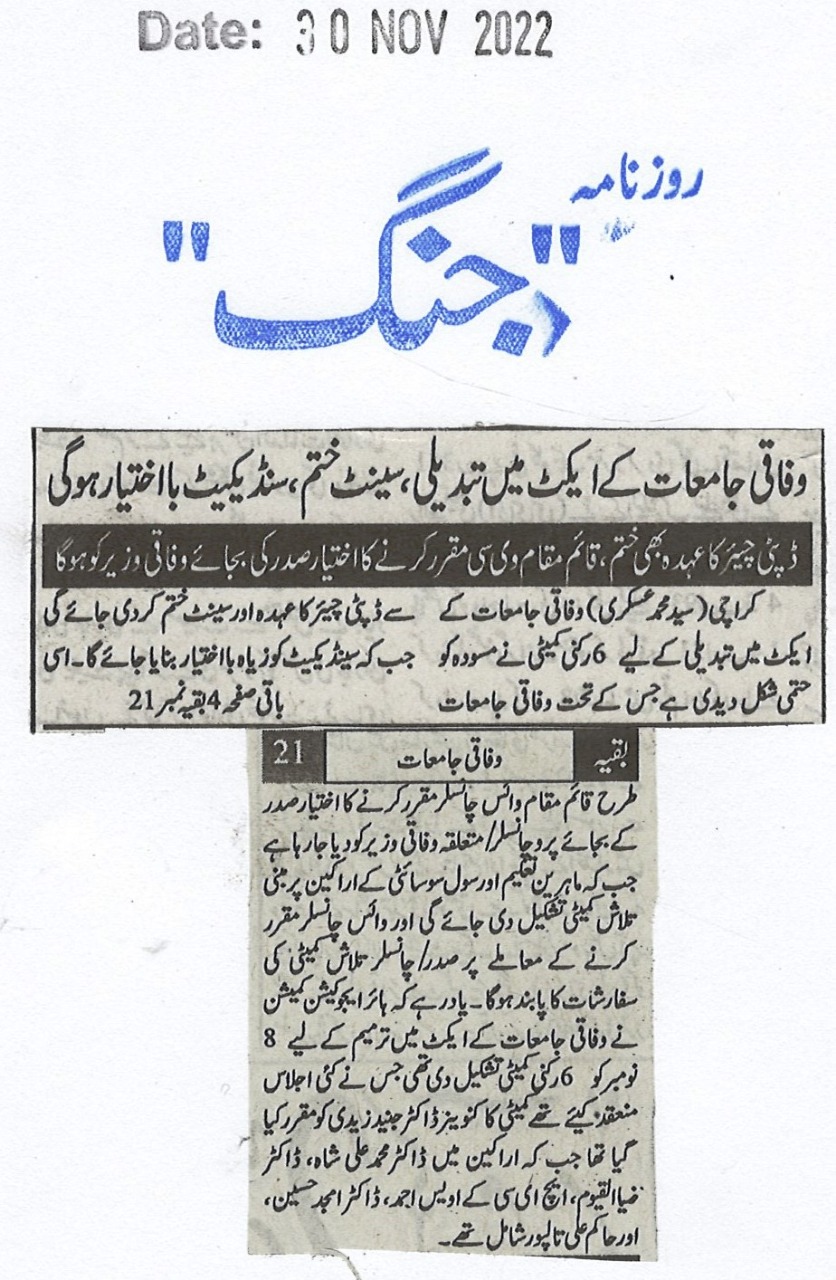 Date: 30 NOV 2022
روزنامہ
"جنگ"
وفاقی جامعات کے ایکٹ میں تبدیلی، سینٹ ختم، سنڈیکیٹ بااختیار ہوگی
ڈپٹی چیئر کا عہدہ بھی ختم، قائم مقام وی سی مقرر کرنے کا اختیار صدر کی بجائے وفاقی وزیر کو ہوگا
کراچی (سید محمد عسکری) وفاقی جامعات کے
ایکٹ میں تبدیلی کے لیے 6 رکنی کمیٹی نے مسودہ کو
حتمی شکل دیدی ہے جس کے تحت وفاقی جامعات
سے ڈپٹی چیئر کا عہدہ اور سینٹ ختم کر دی جائے گی
جب کہ سینڈیکیٹ کو زیاہ بااختیار بنایا جائے گا۔ اسی
باقی صفحہ 4 بقیہ نمبر 21
بقیہ وفاقی جامعات 21
طرح قائم مقام وائس چانسلر مقرر کرنے کا اختیار صدر
کے بجائے پروچانسلر/ متعلقہ وفاقی وزیر کو دیا جارہا ہے
جب کہ ماہرین تعلیم اور سول سوسائٹی کے اراکین پر مبنی
تلاش کمیٹی تشکیل دی جائے گی اور وائس چانسلر مقرر
کرنے کے معاملے پر صدر/ چانسلر تلاش کمیٹی کی
سفارشات کا پابند ہوگا۔ یاد رہے کہ ہائر ایجوکیشن کمیشن
نے وفاقی جامعات کے ایکٹ میں ترمیم کے لیے 8
نومبر کو 6 رکنی کمیٹی تشکیل دی تھی جس نے کئی اجلاس
منعقد کیئے تھے کمیٹی کا کنوینر ڈاکٹر جنید زیدی کو مقرر کیا
گیا تھا جب کہ اراکین میں ڈاکٹر محمد علی شاہ، ڈاکٹر
ضیا القیوم، ایچ ای سی کے اویس احمد، ڈاکٹر امجد حسین،
اور حاکم علی تالپور شامل تھے۔